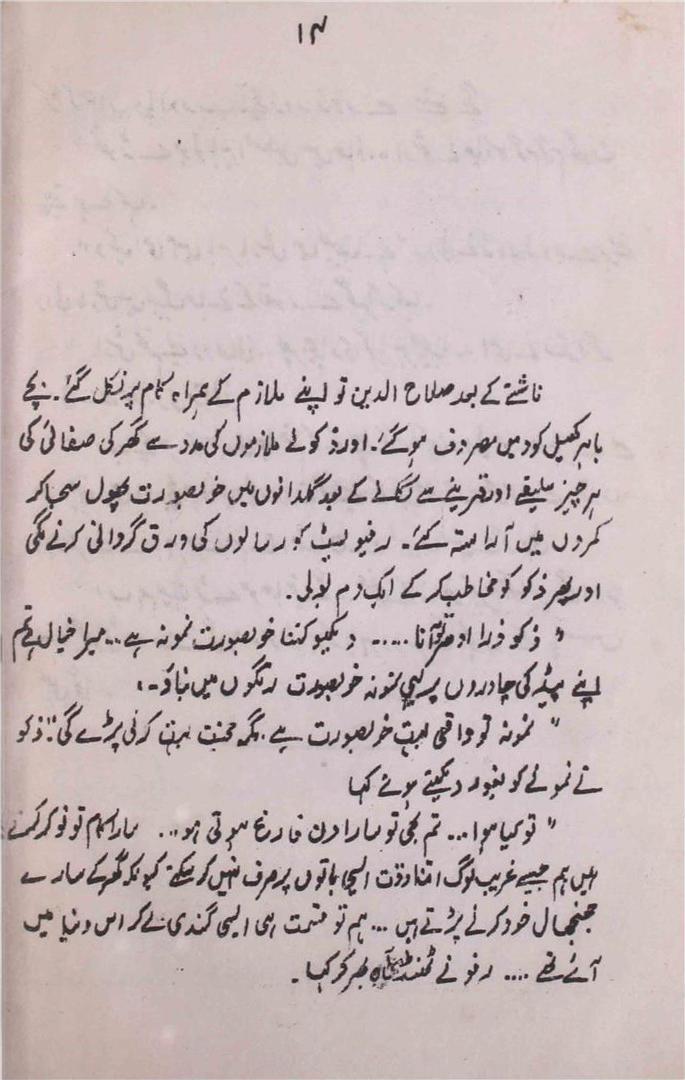 ۱۴
ناشتے کے بعد صلاح الدین تو اپنے ملازم کے ہمراہ کام پر نکل گئے۔ بچے
باہر کھیل کود میں مصروف ہو گئے۔ اور ذکو نے ملازموں کی مدد سے گھر کی صفائی کی
ہر چیز سلیقے اور قرینے سے رکھنے کے بعد گلدانوں میں خوبصورت پھول سجا کر
کمروں میں آراستہ کئے۔ رفیو بیٹھ کر رسالوں کی ورق گردانی کرنے لگی
اور پھر ذکو کو مخاطب کر کے ایک دم بولی۔
" ذکو ذرا ادھر تو آنا ..... دیکھیو کتنا خوبصورت نمونہ ہے ... میرا خیال ہے تم
اپنے بیڈ کی چادروں پر یہی نمونہ خوبصورت رنگوں میں بناؤ۔"
" نمونہ تو واقعی بہت خوبصورت ہے ۔ مگر محنت بہت کرنی پڑے گی" ذکو
نے نمونے کو بغور دیکھتے ہوئے کہا
" تو کیا ہوا ... تم بھی تو سارا دن فارغ ہوتی ہو ... سارا کام تو نوکر کرتے
ہیں ہم جیسے غریب لوگ اتنا وقت ایسی باتوں پر صرف نہیں کر سکتے کیونکہ گھر کے سارے
جنجھال خود کرنے پڑتے ہیں ... ہم تو قسمت ہی ایسی گندی لے کر اس دنیا میں
آئے تھے .... رفو نے ٹھنڈی آہ بھر کر کہا ۔